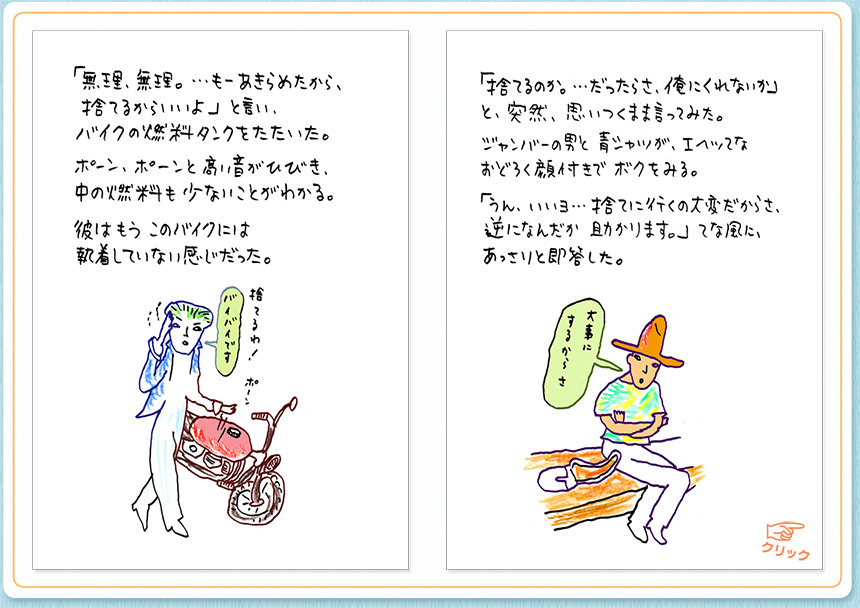 「無理、無理。…もーあきらめたから、
捨てるからいいよ」と言い、
バイクの燃料タンクをたたいた。
ポーン、ポーンと高い音がひびき、
中の燃料も少ないことがわかる。
彼はもうこのバイクには
執着していない感じだった。
捨てるわ！
バイバイです
ポーン
「捨てるのか。…だったらさ、俺にくれないか」
と、突然、思いつくまま言ってみた。
ジャンバーの男と青シャツが、エヘッてな
おどろく顔付きでボクをみる。
「うん、いいヨ…捨てに行くの大変だからさ、
逆になんだか助かります。」てな風に、
あっさりと即答した。
大事に
するからさ
クリック